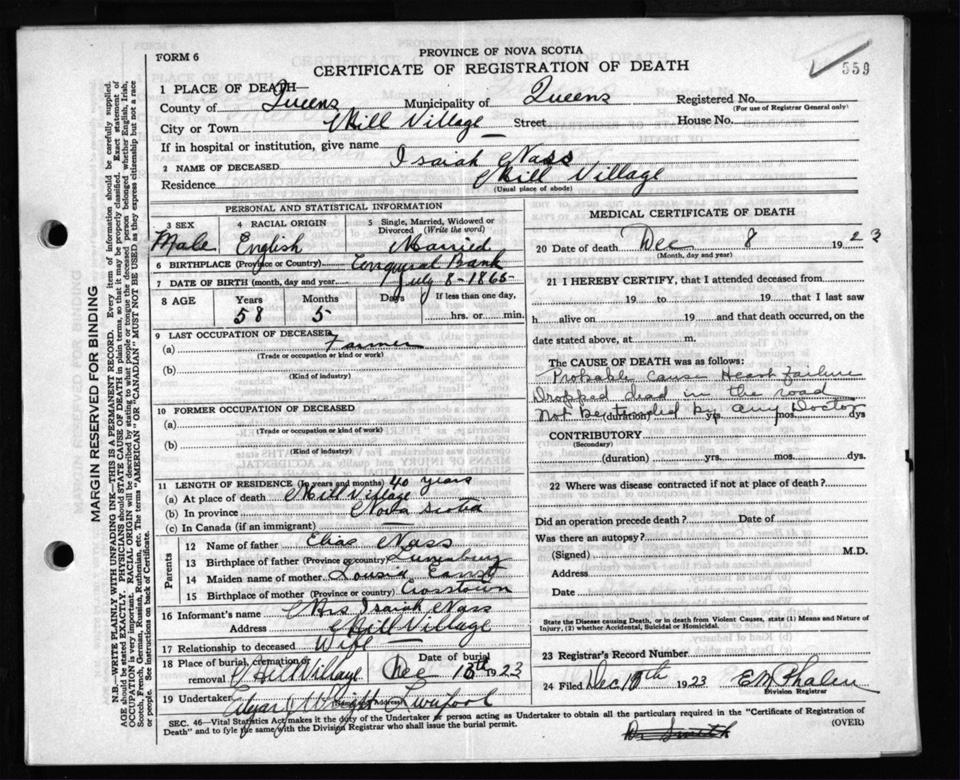 FORM 6
PROVINCE OF NOVA SCOTIA
CERTIFICATE OF REGISTRATION OF DEATH
559
1 PLACE OF DEATH—
County of Queens Municipality of Queens Registered No.
(For use of Registrar General only)
City or Town Mill Village Street House No.
If in hospital or institution, give name
2 NAME OF DECEASED Isaiah Nass
Residence Mill Village
(Usual place of abode)
PERSONAL AND STATISTICAL INFORMATION
3 SEX 4 RACIAL ORIGIN 5 Single, Married, Widowed or Divorced (Write the word)
Male English Married
6 BIRTHPLACE (Province or Country) Conquerall Bank
7 DATE OF BIRTH (month, day and year) July 8 - 1865
8 AGE Years Months Days If less than one day,
58 5 hrs. or min.
9 LAST OCCUPATION OF DECEASED
(a) Farmer
(Trade or occupation or kind or work)
(b)
(Kind of industry)
10 FORMER OCCUPATION OF DECEASED
(a)
(Trade or occupation or kind of work)
(b)
(Kind of industry)
11 LENGTH OF RESIDENCE (In years and months) 40 years
(a) At place of death Mill Village
(b) In province Nova Scotia
(c) In Canada (if an immigrant)
Parents
12 Name of father Elias Nass
13 Birthplace of father (Province or country) Lunenburg
14 Maiden name of mother
15 Birthplace of mother (Province or country) Crosstown
16 Informant's name Mrs Isaiah Nass
Address Mill Village
17 Relationship to deceased Wife
18 Place of burial, cremation or removal Mill Village Date of burial Dec 1923
19 Undertaker Liverpool
MEDICAL CERTIFICATE OF DEATH
20 Date of death Dec 8 1923
(Month, day and year)
21 I HEREBY CERTIFY, that I attended deceased from
19 to 19 that I last saw
h alive on 19 and that death occurred, on the
date stated above, at m.
The CAUSE OF DEATH was as follows:
Probably Cause Heart failure
Dropped dead in the road
Not be tended by any Doctor
(duration) yrs. mos. dys
CONTRIBUTORY
(Secondary)
(duration) yrs. mos. dys.
22 Where was disease contracted if not at place of death?
Did an operation precede death? Date of
Was there an autopsy?
(Signed) M.D.
Address
Date
State the Disease causing Death, or in death from Violent Causes, state (1) Means and Nature of Injury, (2) whether Accidental, Suicidal or Homicidal.
23 Registrar's Record Number
24 Filed Dec 1923 E M Phalen
Division Registrar
SEC. 46—Vital Statistics Act makes it the duty of the Undertaker or person acting as Undertaker to obtain all the particulars required in the "Certificate of Registration of
Death" and to fyle the same with the Division Registrar who shall issue the burial permit. (OVER)
Dr Smith
MARGIN RESERVED FOR BINDING
N.B.—WRITE PLAINLY WITH UNFADING INK—THIS IS A PERMANENT RECORD. Every item of information should be carefully supplied.
AGE should be stated EXACTLY. PHYSICIANS should STATE CAUSE OF DEATH in plain terms, so that it may be properly classified. Exact statement of
OCCUPATION is very important. RACIAL ORIGIN will be described by stating to what people or tongue the deceased person belonged whether English, Irish,
Scotch, French, German, Russian, Ruthenian, etc. The terms "AMERICAN" or "CANADIAN" MUST NOT BE USED as they express citizenship but not a race
or people. See instructions on back of Certificate.